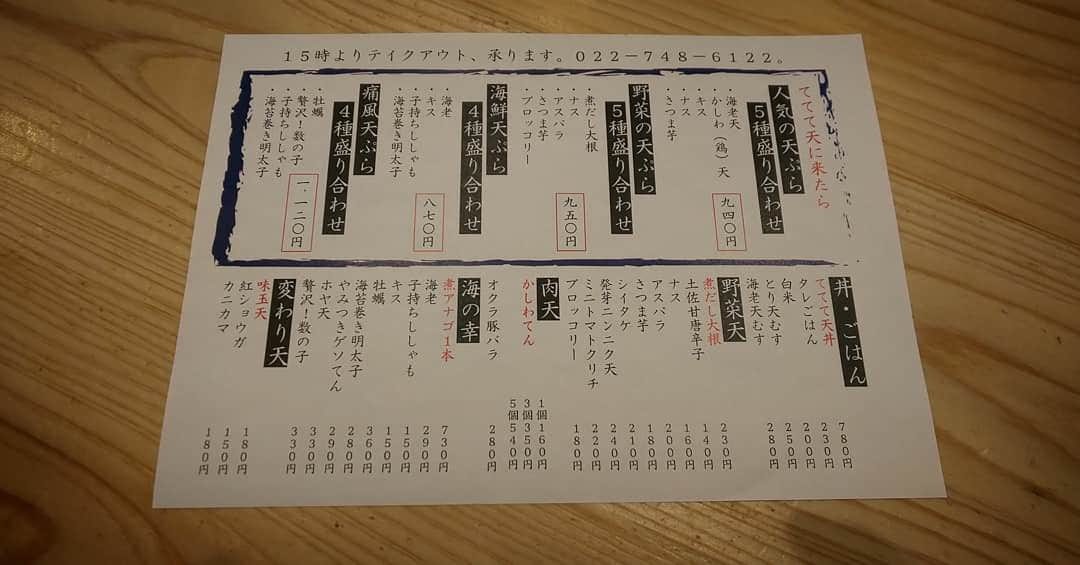 １５時よりテイクアウト、承ります。０２２－７４８－６１２２。
ててて天に来たら
人気の天ぷら
５種盛り合わせ
・海老天
・かしわ（鶏）天
・キス
・ナス
・さつま芋
九四〇円
野菜の天ぷら
５種盛り合わせ
・煮だし大根
・ナス
・アスパラ
・さつま芋
・ブロッコリー
九五〇円
海鮮天ぷら
４種盛り合わせ
・海老
・キス
・子持ちししゃも
・海苔巻き明太子
八七〇円
痛風天ぷら
４種盛り合わせ
・牡蠣
・贅沢！数の子
・子持ちししゃも
・海苔巻き明太子
一、一二〇円
丼・ごはん
ててて天丼 780円
タレごはん 230円
白米 200円
とり天むす 250円
海老天むす 280円
野菜天
煮だし大根 230円
土佐甘唐辛子 140円
ナス 160円
アスパラ 200円
さつま芋 180円
シイタケ 210円
発芽ニンニク天 240円
ミニトマトクリチ 220円
ブロッコリー 180円
肉天
かしわてん 1個160円
3個350円
5個540円
オクラ豚バラ 280円
海の幸
煮アナゴ１本 730円
海老 290円
子持ちししゃも 150円
キス 150円
牡蠣 360円
海苔巻き明太子 280円
やみつきゲソてん 290円
ホヤ天 330円
贅沢！数の子 330円
変わり天
味玉天 180円
紅ショウガ 150円
カニカマ 180円